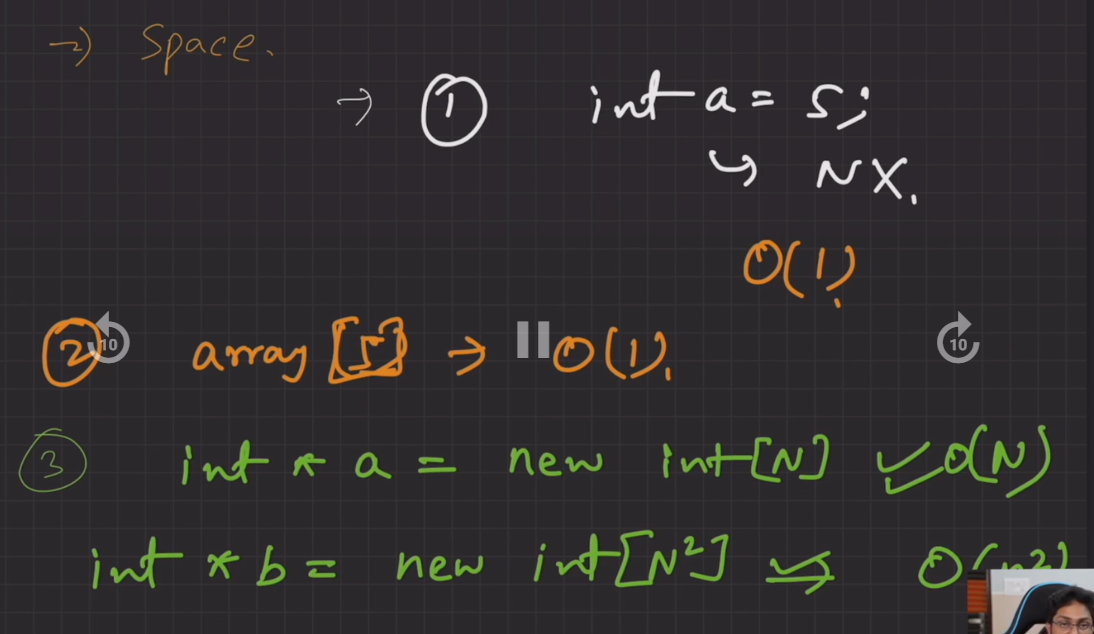 → Space.
→ ① int a = 5;
↳ N X.
O(1)
② array [5] → O(1).
10
10
③ int * a = new int[N] ✓ O(N)
int * b = new int[N²] ✓ O(n²)